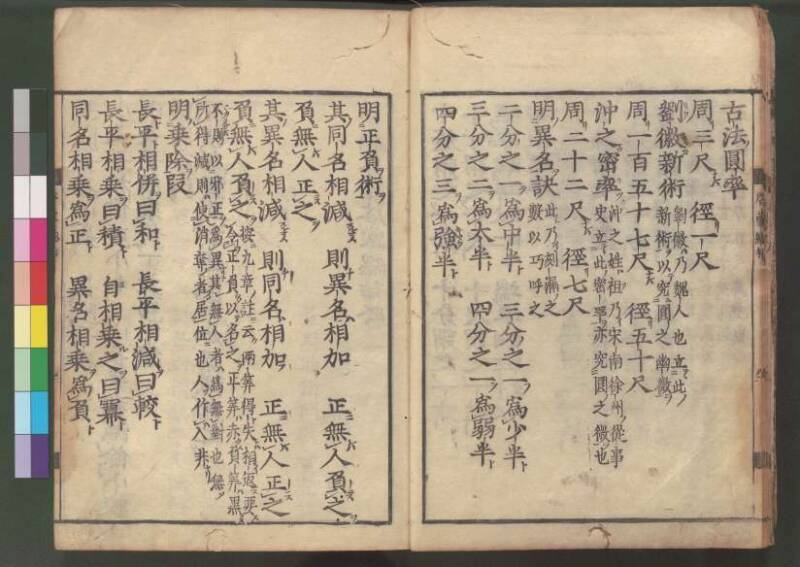 古法圓率
周三尺　徑一尺
劉徽新術　劉徽乃魏人也立此
新術以究圓之幽微
周一百五十七尺　徑五十尺
沖之密率　沖之姓祖乃宋南徐州從事
史立此密率亦究圓之微也
周二十二尺　徑七尺
明異名訣　此乃刻漏之
數以巧呼之
二分之一爲中半　三分之一爲少半
三分之二爲太半　四分之一爲弱半
四分之三爲強半
明正負術
其同名相減　則異名相加　正無人負之
負無人正之
其異名相減　則同名相加　正無人正之
負無人負之　按九章註云兩算得失相返要
令正負以名之正算赤負算黑
不則以邪正爲異其無人者爲無對也無
所得減則使消奪者居位也人作入非
明乘除段
長平相併曰和　長平相減曰較
長平相乘曰積　自相乘之曰冪
同名相乘爲正　異名相乘爲負